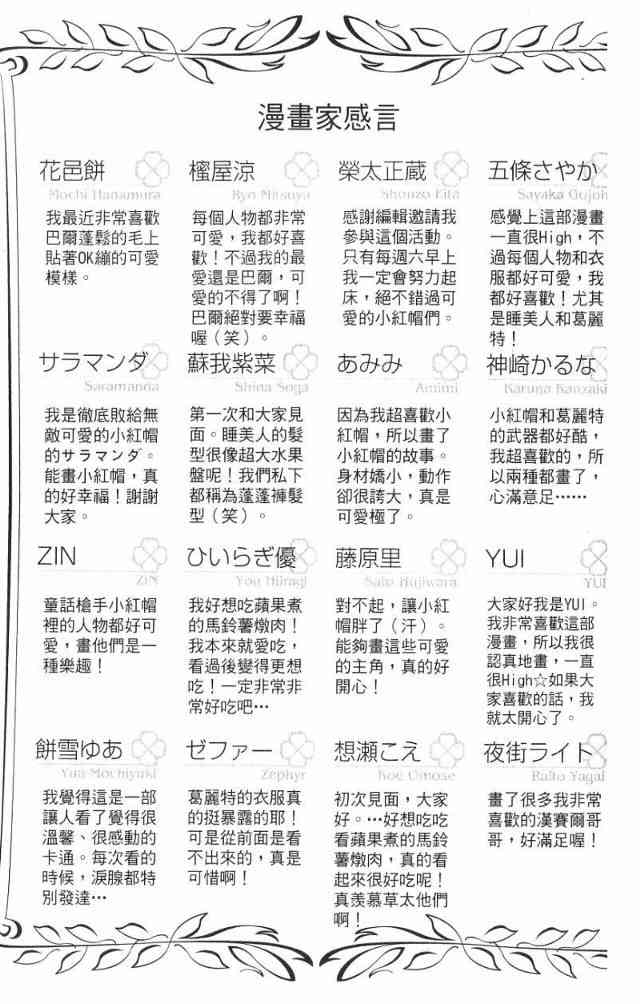 漫畫家感言
花邑餅
Mochi Hanamura
我最近非常喜歡
巴爾蓬鬆的毛上
貼著OK繃的可愛
模樣。
樒屋涼
Ryo Mitsuya
每個人物都非常
可愛，我都好喜
歡！不過我的最
愛還是巴爾，可
愛的不得了啊！
巴爾絕對要幸福
喔（笑）。
榮太正蔵
Shouzo Eita
感謝編輯邀請我
參與這個活動。
只有每週六早上
我一定會努力起
床，絕不錯過可
愛的小紅帽們。
五條さやか
Sayaka Gujoh
感覺上這部漫畫
一直很High，不
過每個人物和衣
服都好可愛，我
都好喜歡！尤其
是睡美人和葛麗
特！
サラマンダ
Saramanda
我是徹底敗給無
敵可愛的小紅帽
的サラマンダ。
能畫小紅帽，真
的好幸福！謝謝
大家。
蘇我紫菜
Shina Soga
第一次和大家見
面。睡美人的髮
型很像超大水果
盤呢！我們私下
都稱為蓬蓬褲髮
型（笑）。
あみみ
Amimi
因為我超喜歡小
紅帽，所以畫了
小紅帽的故事。
身材嬌小，動作
卻很誇大，真是
可愛極了。
神崎かるな
Karuna Kanzaki
小紅帽和葛麗特
的武器都好酷，
我超喜歡的，所
以兩種都畫了，
心滿意足……
ZIN
ZIN
童話槍手小紅帽
裡的人物都好可
愛，畫他們是一
種樂趣！
ひいらぎ優
You Hiiragi
我好想吃蘋果煮
的馬鈴薯燉肉！
我本來就愛吃，
看過後變得更想
吃！一定非常非
常好吃吧…
藤原里
Sato Hujiwara
對不起，讓小紅
帽胖了（汗）。
能夠畫這些可愛
的主角，真的好
開心！
YUI
YUI
大家好我是YUI。
我非常喜歡這部
漫畫，所以我很
認真地畫，一直
很High☆如果大
家喜歡的話，我
就太開心了。
餅雪ゆあ
Yua Mochiyuki
我覺得這是一部
讓人看了覺得很
溫馨、很感動的
卡通。每次看的
時候，淚腺都特
別發達…
ゼファー
Zephyr
葛麗特的衣服真
的挺暴露的耶！
可是從前面是看
不出來的，真是
可惜啊！
想瀬こえ
Koe Omose
初次見面，大家
好。…好想吃吃
看蘋果煮的馬鈴
薯燉肉，真的看
起來很好吃呢！
真羨慕草太他們
啊！
夜街ライト
Raito Yagai
畫了很多我非常
喜歡的漢賽爾哥
哥，好滿足喔！